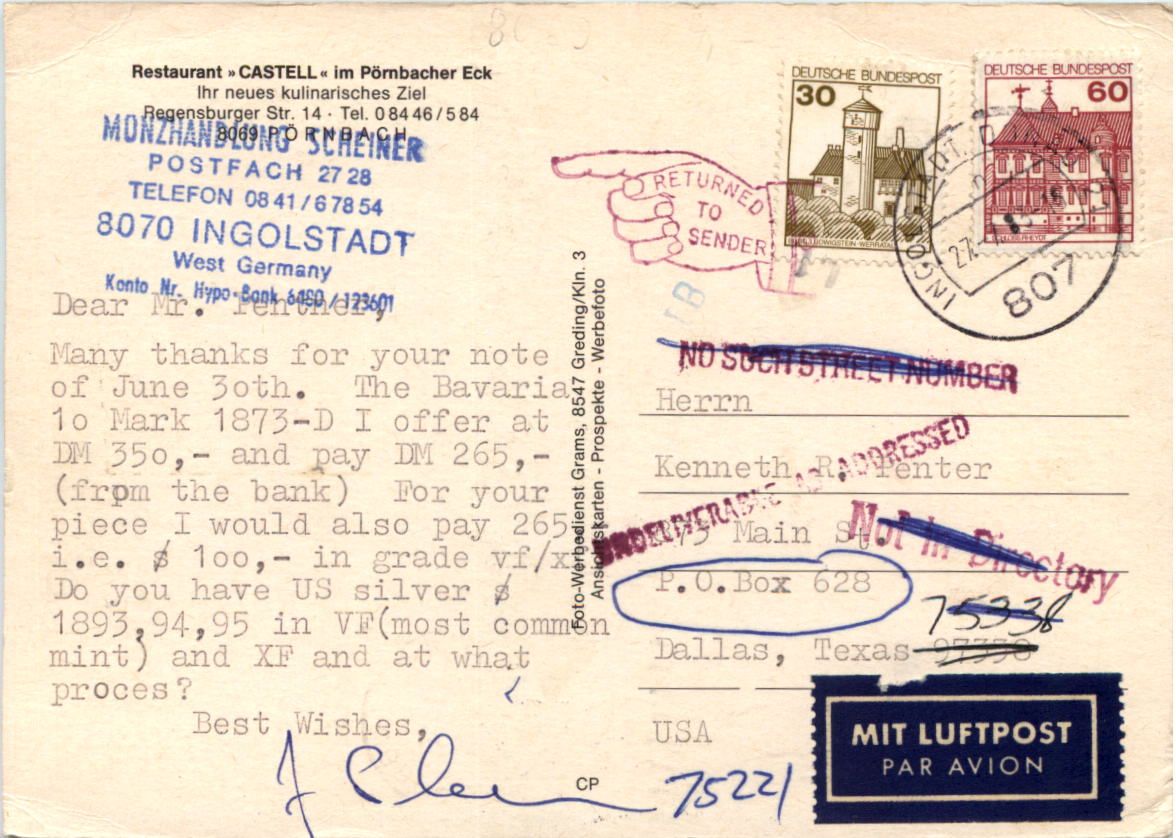 Restaurant »CASTELL« im Pörnbacher Eck
Ihr neues kulinarisches Ziel
Regensburger Str. 14 · Tel. 0 84 46 / 5 84
8069 PÖRNBACH
MÜNZHANDLUNG SCHEINER
POSTFACH 27 28
TELEFON 08 41 / 6 78 54
8070 INGOLSTADT
West Germany
Konto Nr. Hypo-Bank 6460 / 123601
Dear Mr. Penther,
Many thanks for your note
of June 3oth. The Bavaria
1o Mark 1873-D I offer at
DM 35o,- and pay DM 265,-
(from the bank) For your
piece I would also pay 265
i.e. $ 1oo,- in grade vf/xf
Do you have US silver $
1893,94,95 in VF(most common
mint) and XF and at what
proces?
Best Wishes,
Foto-Werbedienst Grams, 8547 Greding/Kln. 3
Ansichtskarten - Prospekte - Werbefoto
CP
DEUTSCHE BUNDESPOST
30
DEUTSCHE BUNDESPOST
60
INGOLSTADT
807
RETURNED
TO
SENDER
NO SUCH STREET NUMBER
Herrn
UNDELIVERABLE AS ADDRESSED
Kenneth R. Penter
Main St.
Not in Directory
P.O.Box 628
75338
Dallas, Texas 97338
USA
75221
MIT LUFTPOST
PAR AVION